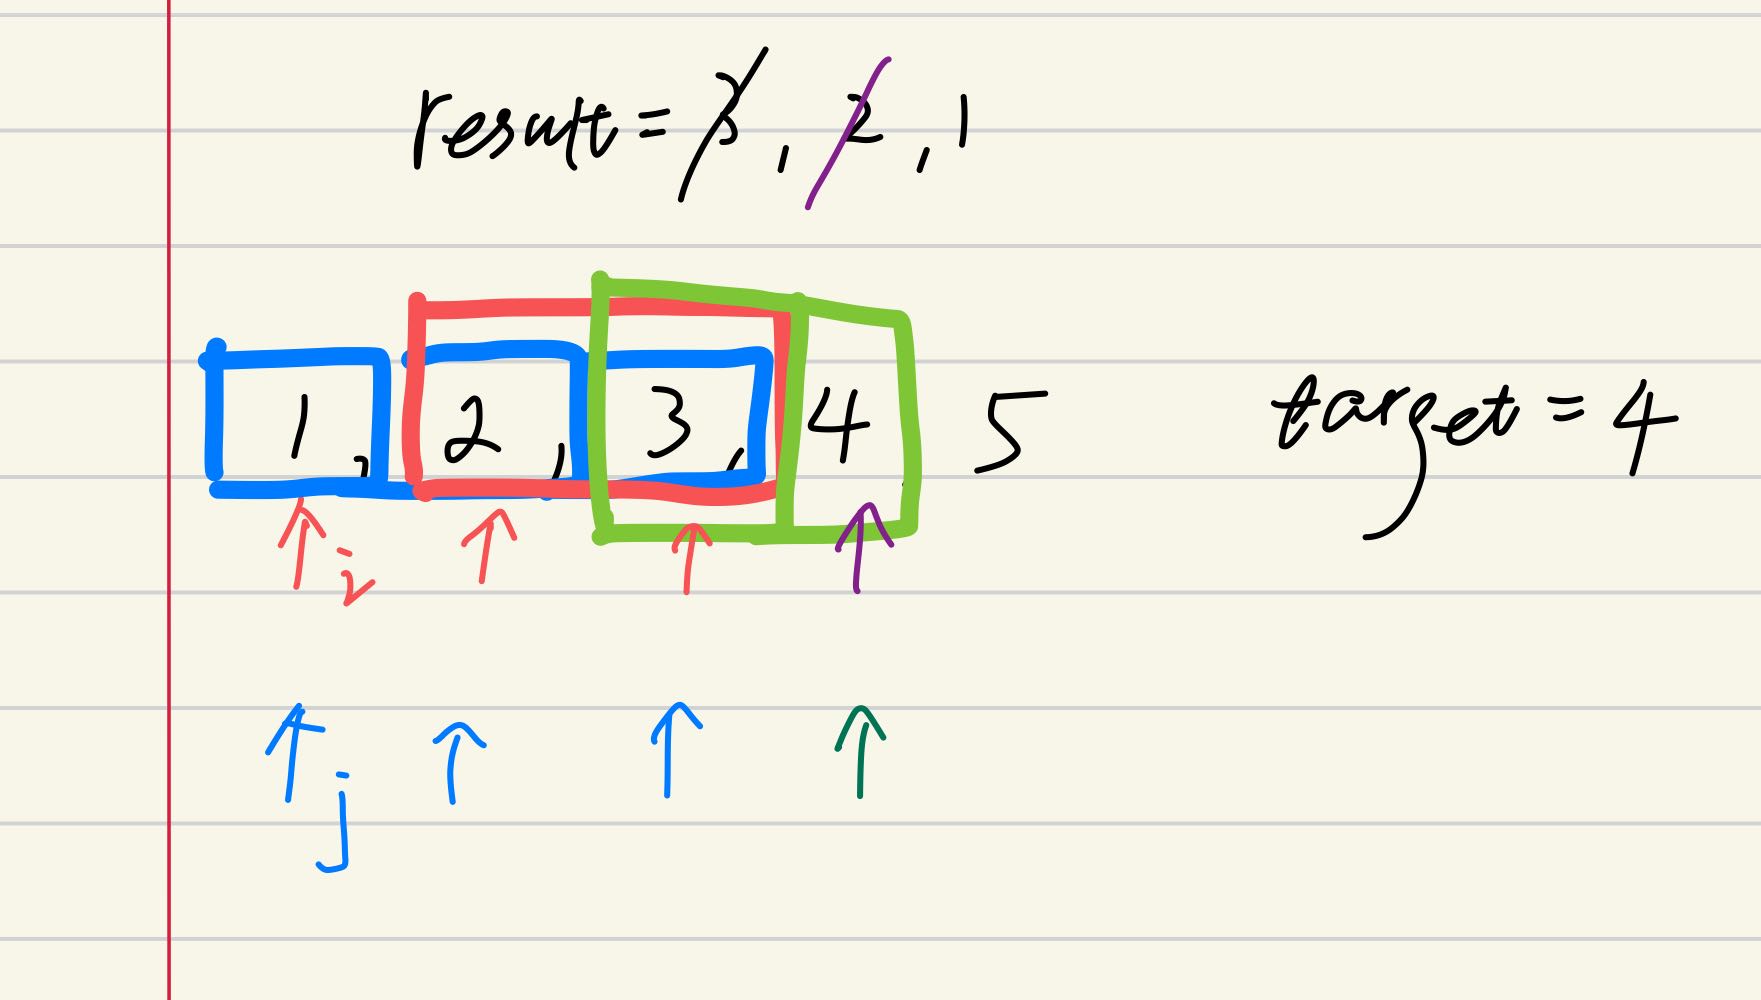 result = 3, 2, 1
1, 2, 3, 4 5
target = 4
i
j